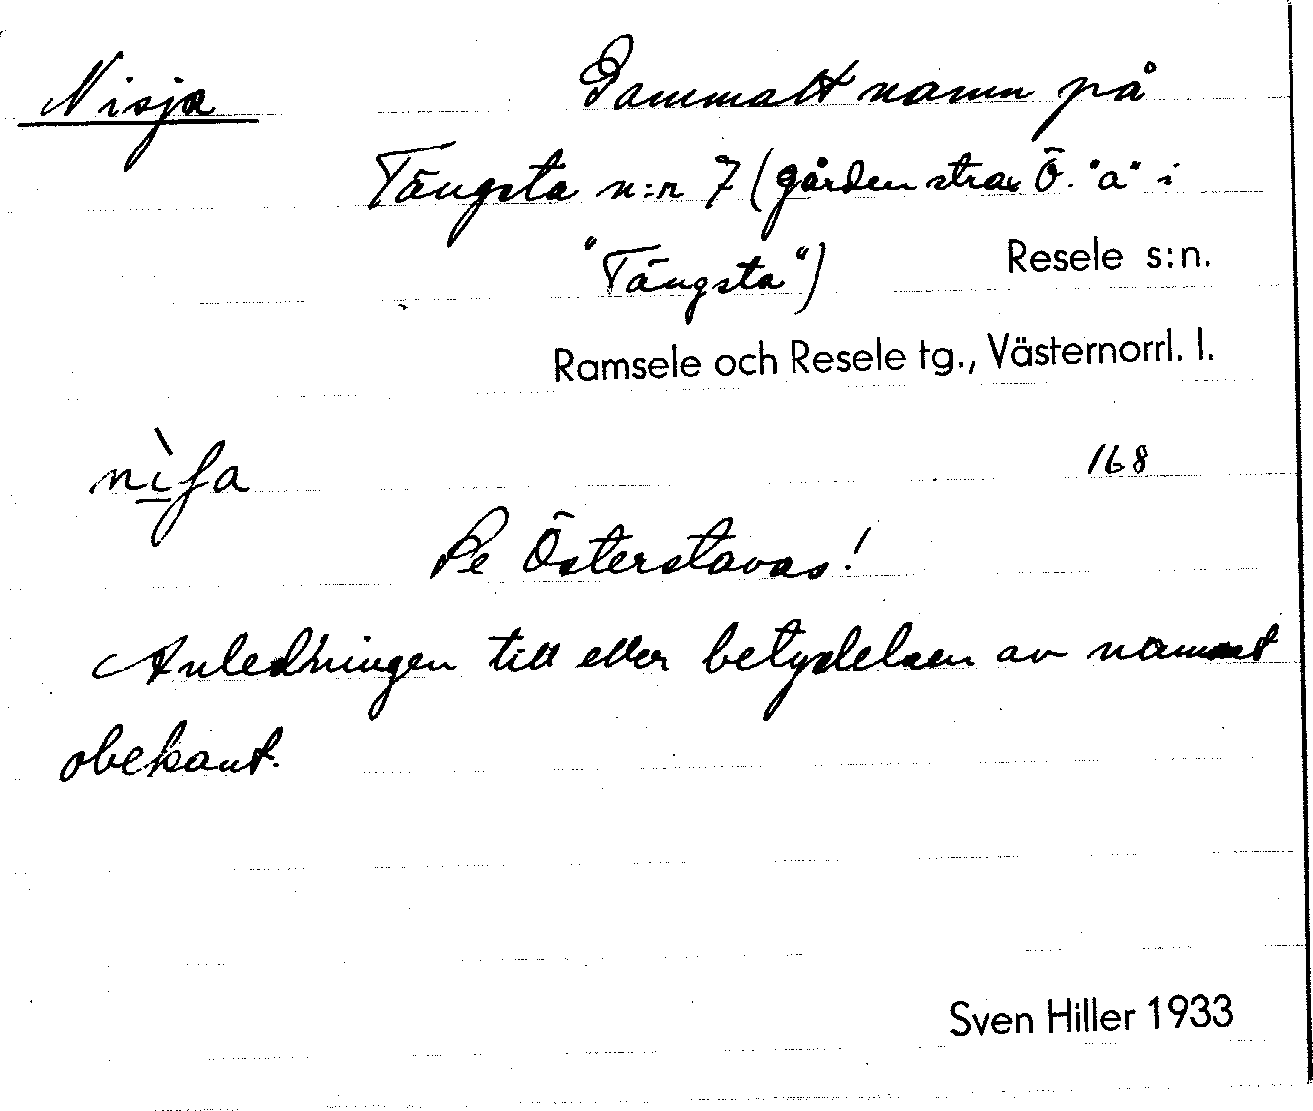 Nisja Gammalt namn på
Tängsta n:r 7 (gården strax Ö. "a" i
"Tängsta")
Resele s:n.
Ramsele och Resele tg., Västernorrl. l.
nìʃa 168
Pe Österstavas!
Anledningen till eller betydelsen av namnet
obekant.
Sven Hiller 1933